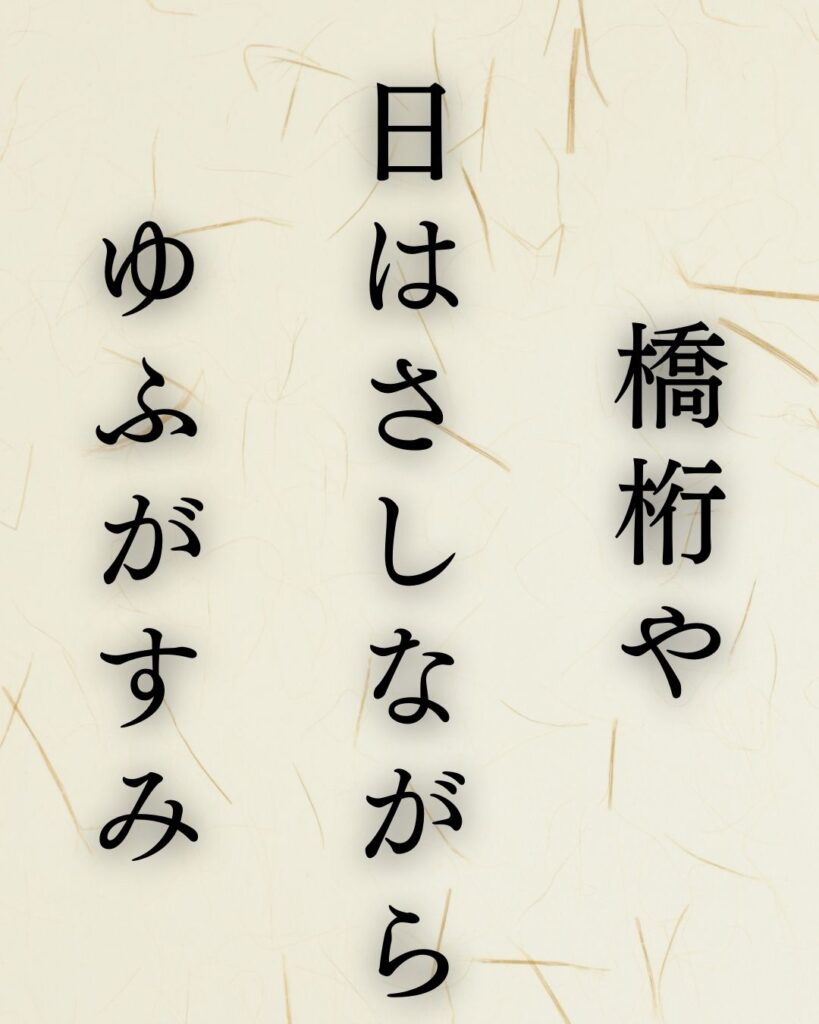 橋桁や
日はさしながら
ゆふがすみ